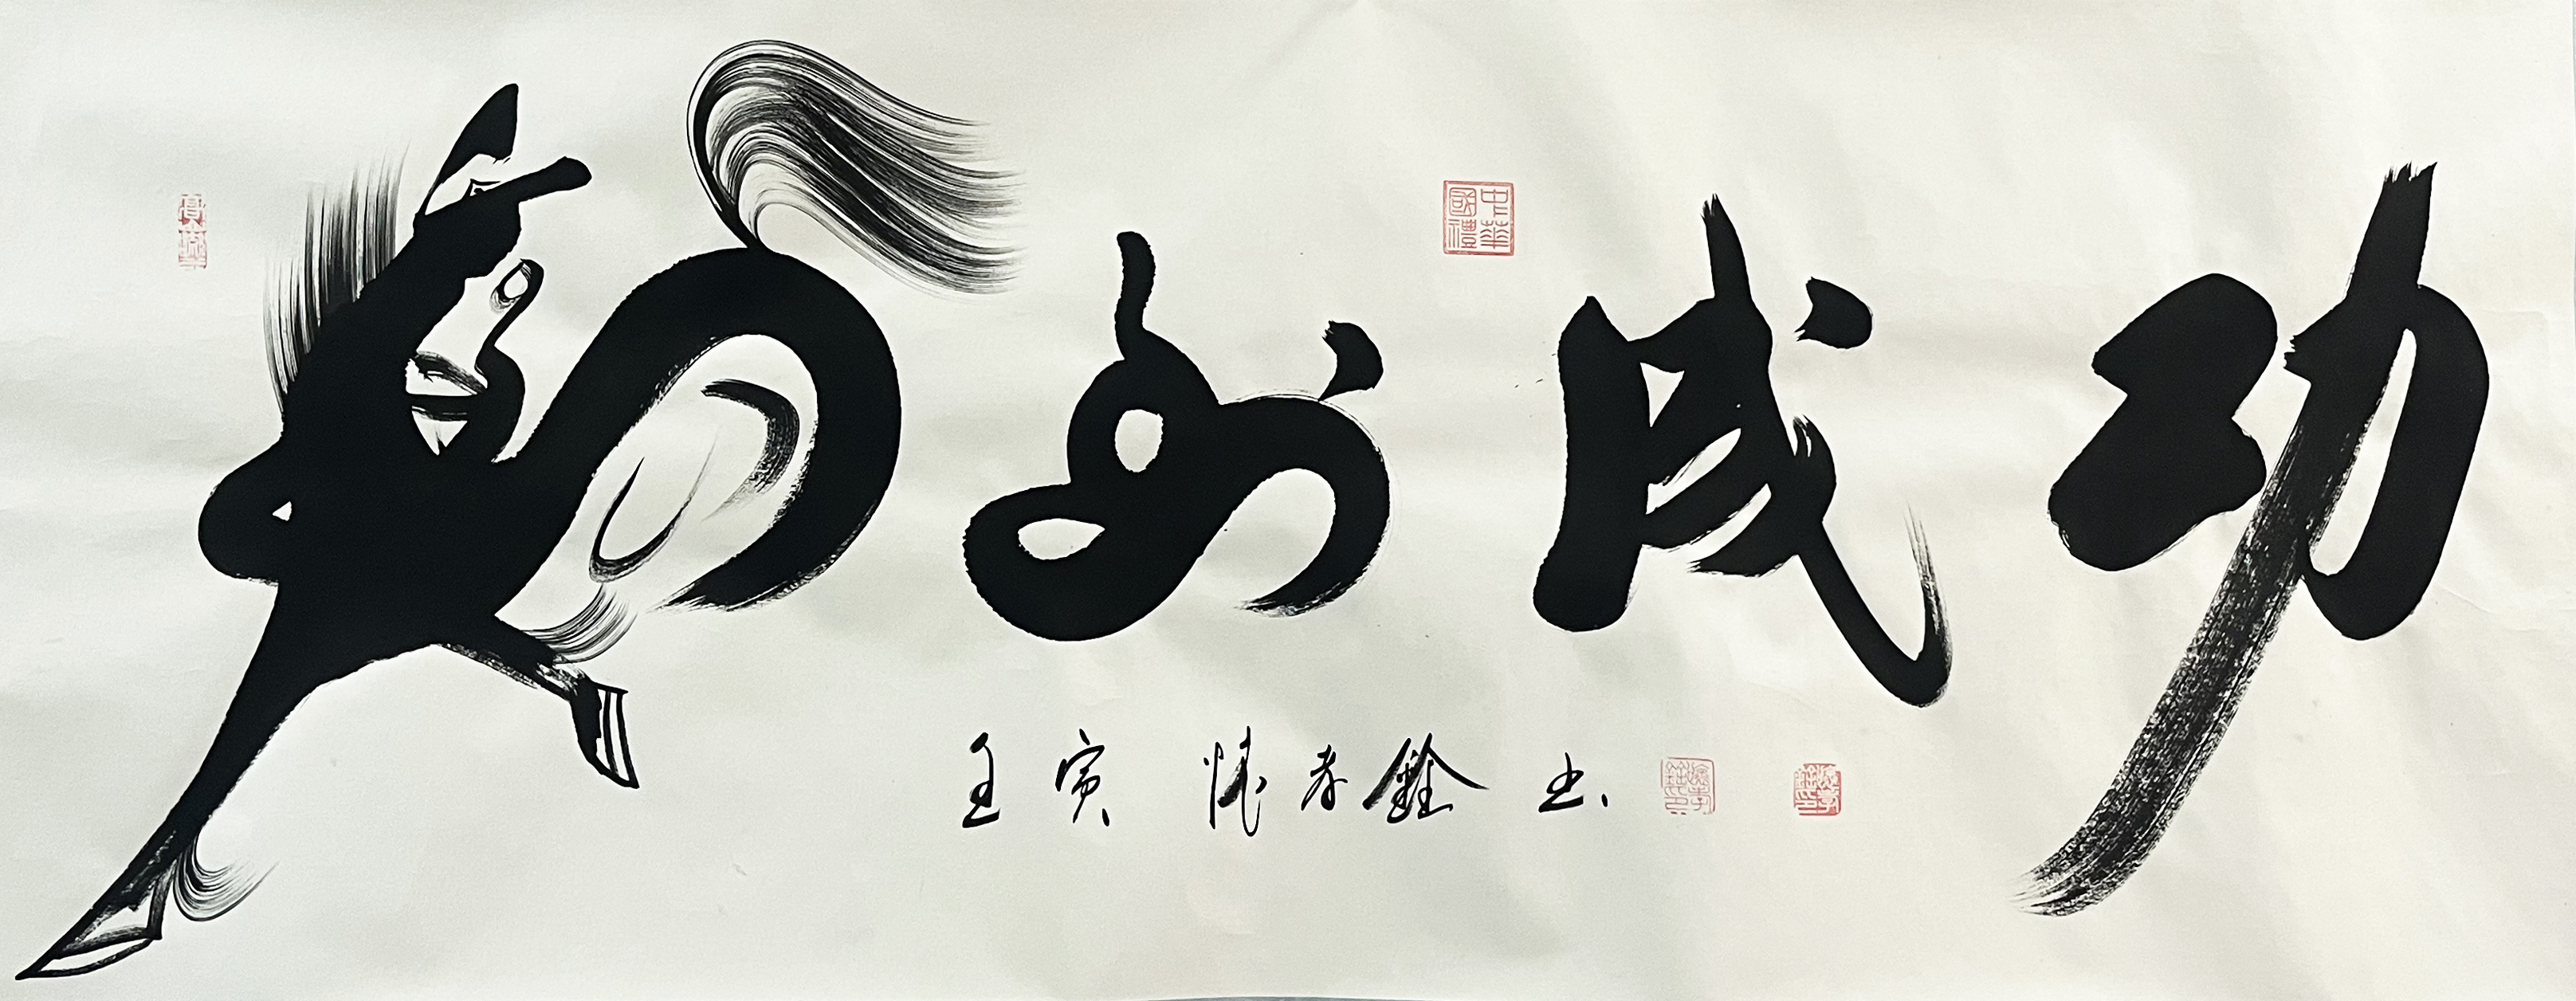 功成到马
中華國禮
壬寅 懐孝銓 书